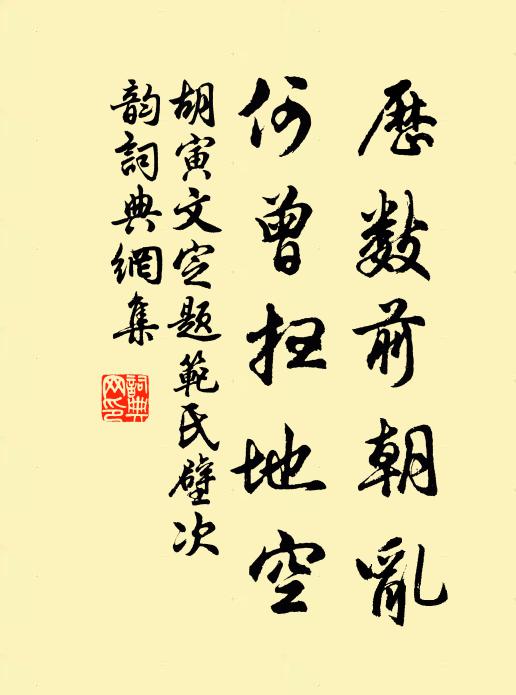 歷數前朝亂
何曾掃地空
胡寅文定題範氏壁次
韵詞典網集
詞典
网印